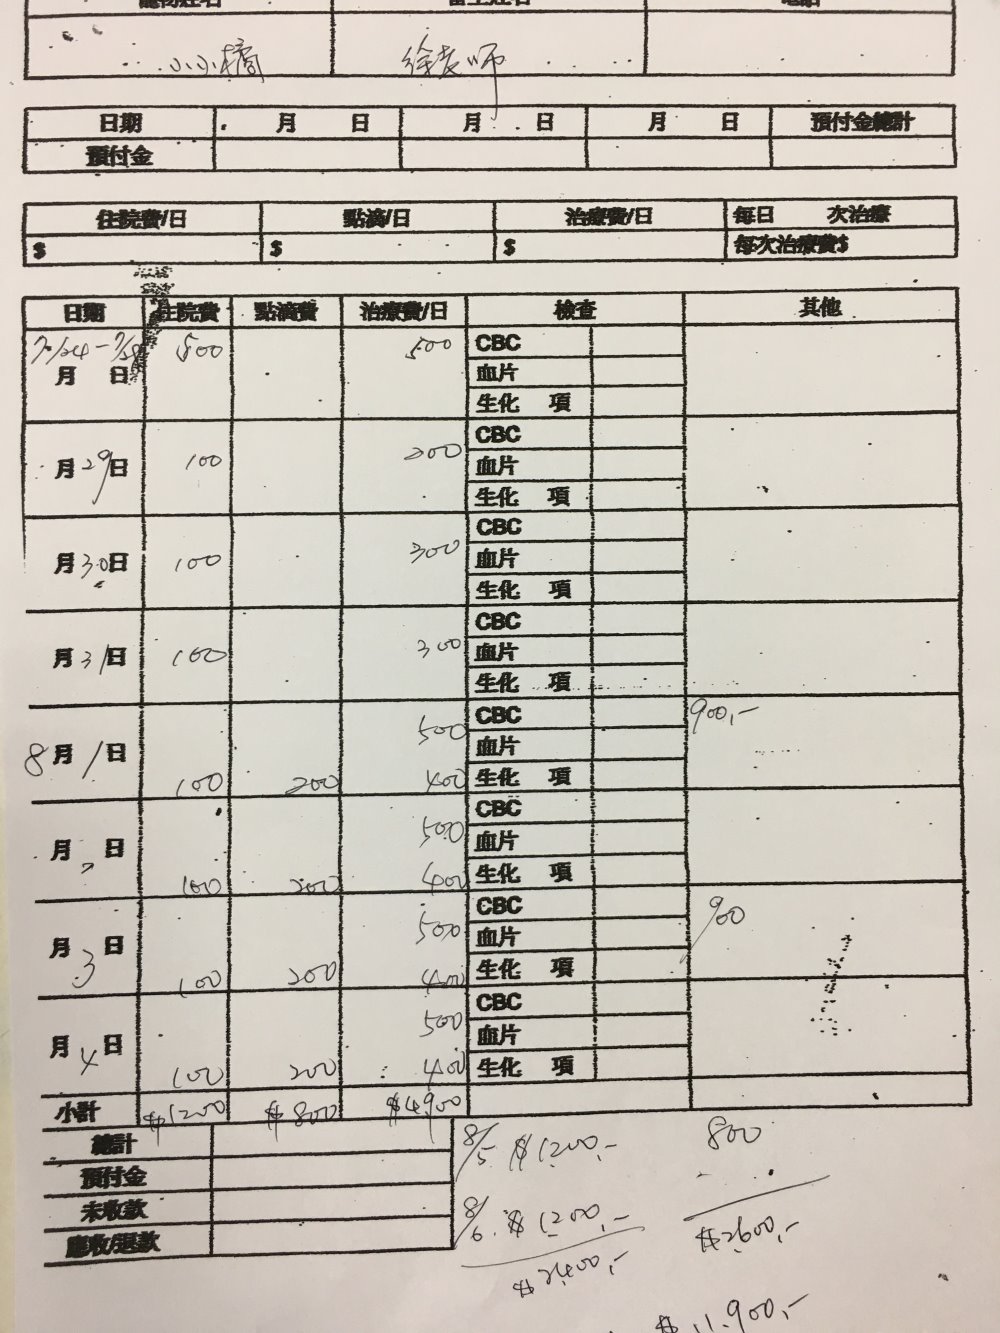 小小橘 徐老師
日期 月 日 月 日 月 日 預付金總計
預付金
住院費/日 點滴/日 治療費/日 每日 次治療
$ $ $ 每次治療費$
日期 住院費 點滴費 治療費/日 檢查 其他
7/24-7/28 500 500 CBC
月 日 血片
生化 項
CBC
月29日 100 200 血片
生化 項
CBC
月30日 100 300 血片
生化 項
CBC
月31日 100 300 血片
生化 項
500 CBC 900,-
8月1日 血片
100 200 400 生化 項
CBC
月2日 500 血片
100 200 400 生化 項
CBC 900
月3日 500 血片
100 200 400 生化 項
CBC
月4日 500 血片
100 200 400 生化 項
小計 $1200 $800 $4900
總計 8/5 $1200,- 800
預付金
未收款 8/6 $1200,- $2600,-
應收/退款 $2400,-
$11,900,-